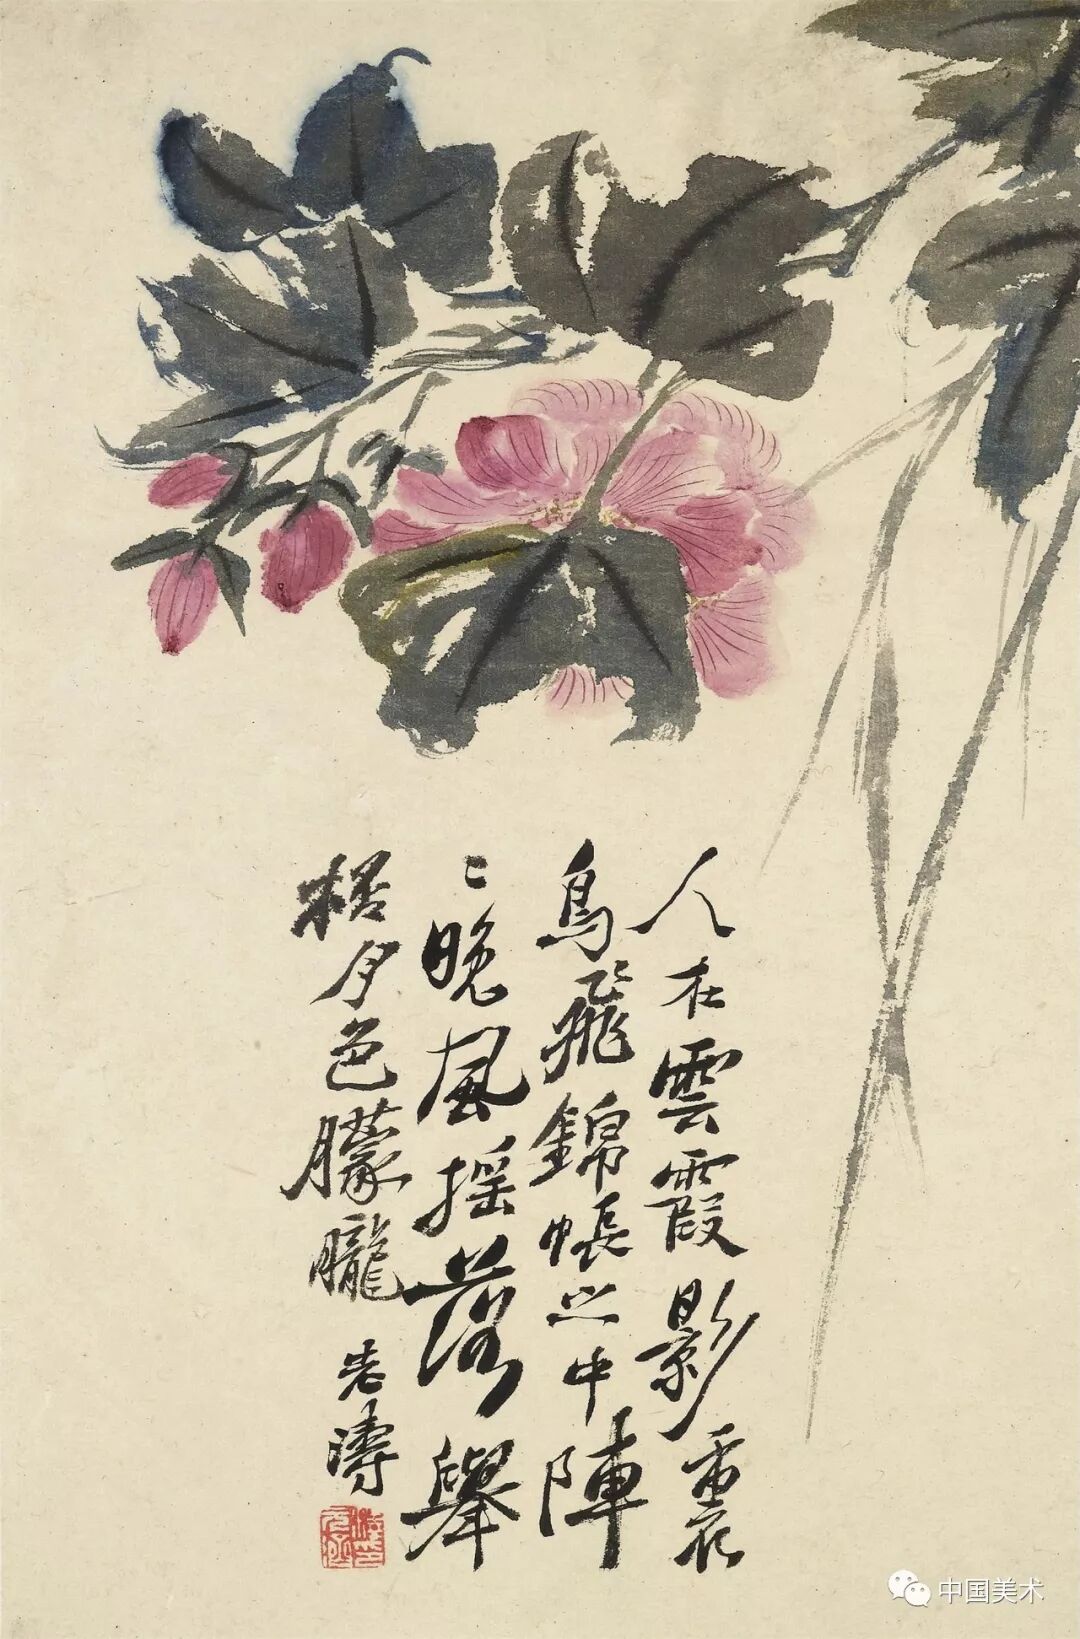 人在雲霞影裏
鳥飛錦帳之中陣
〻晚風摇落舉
桮月色朦朧
老濤
中国美术